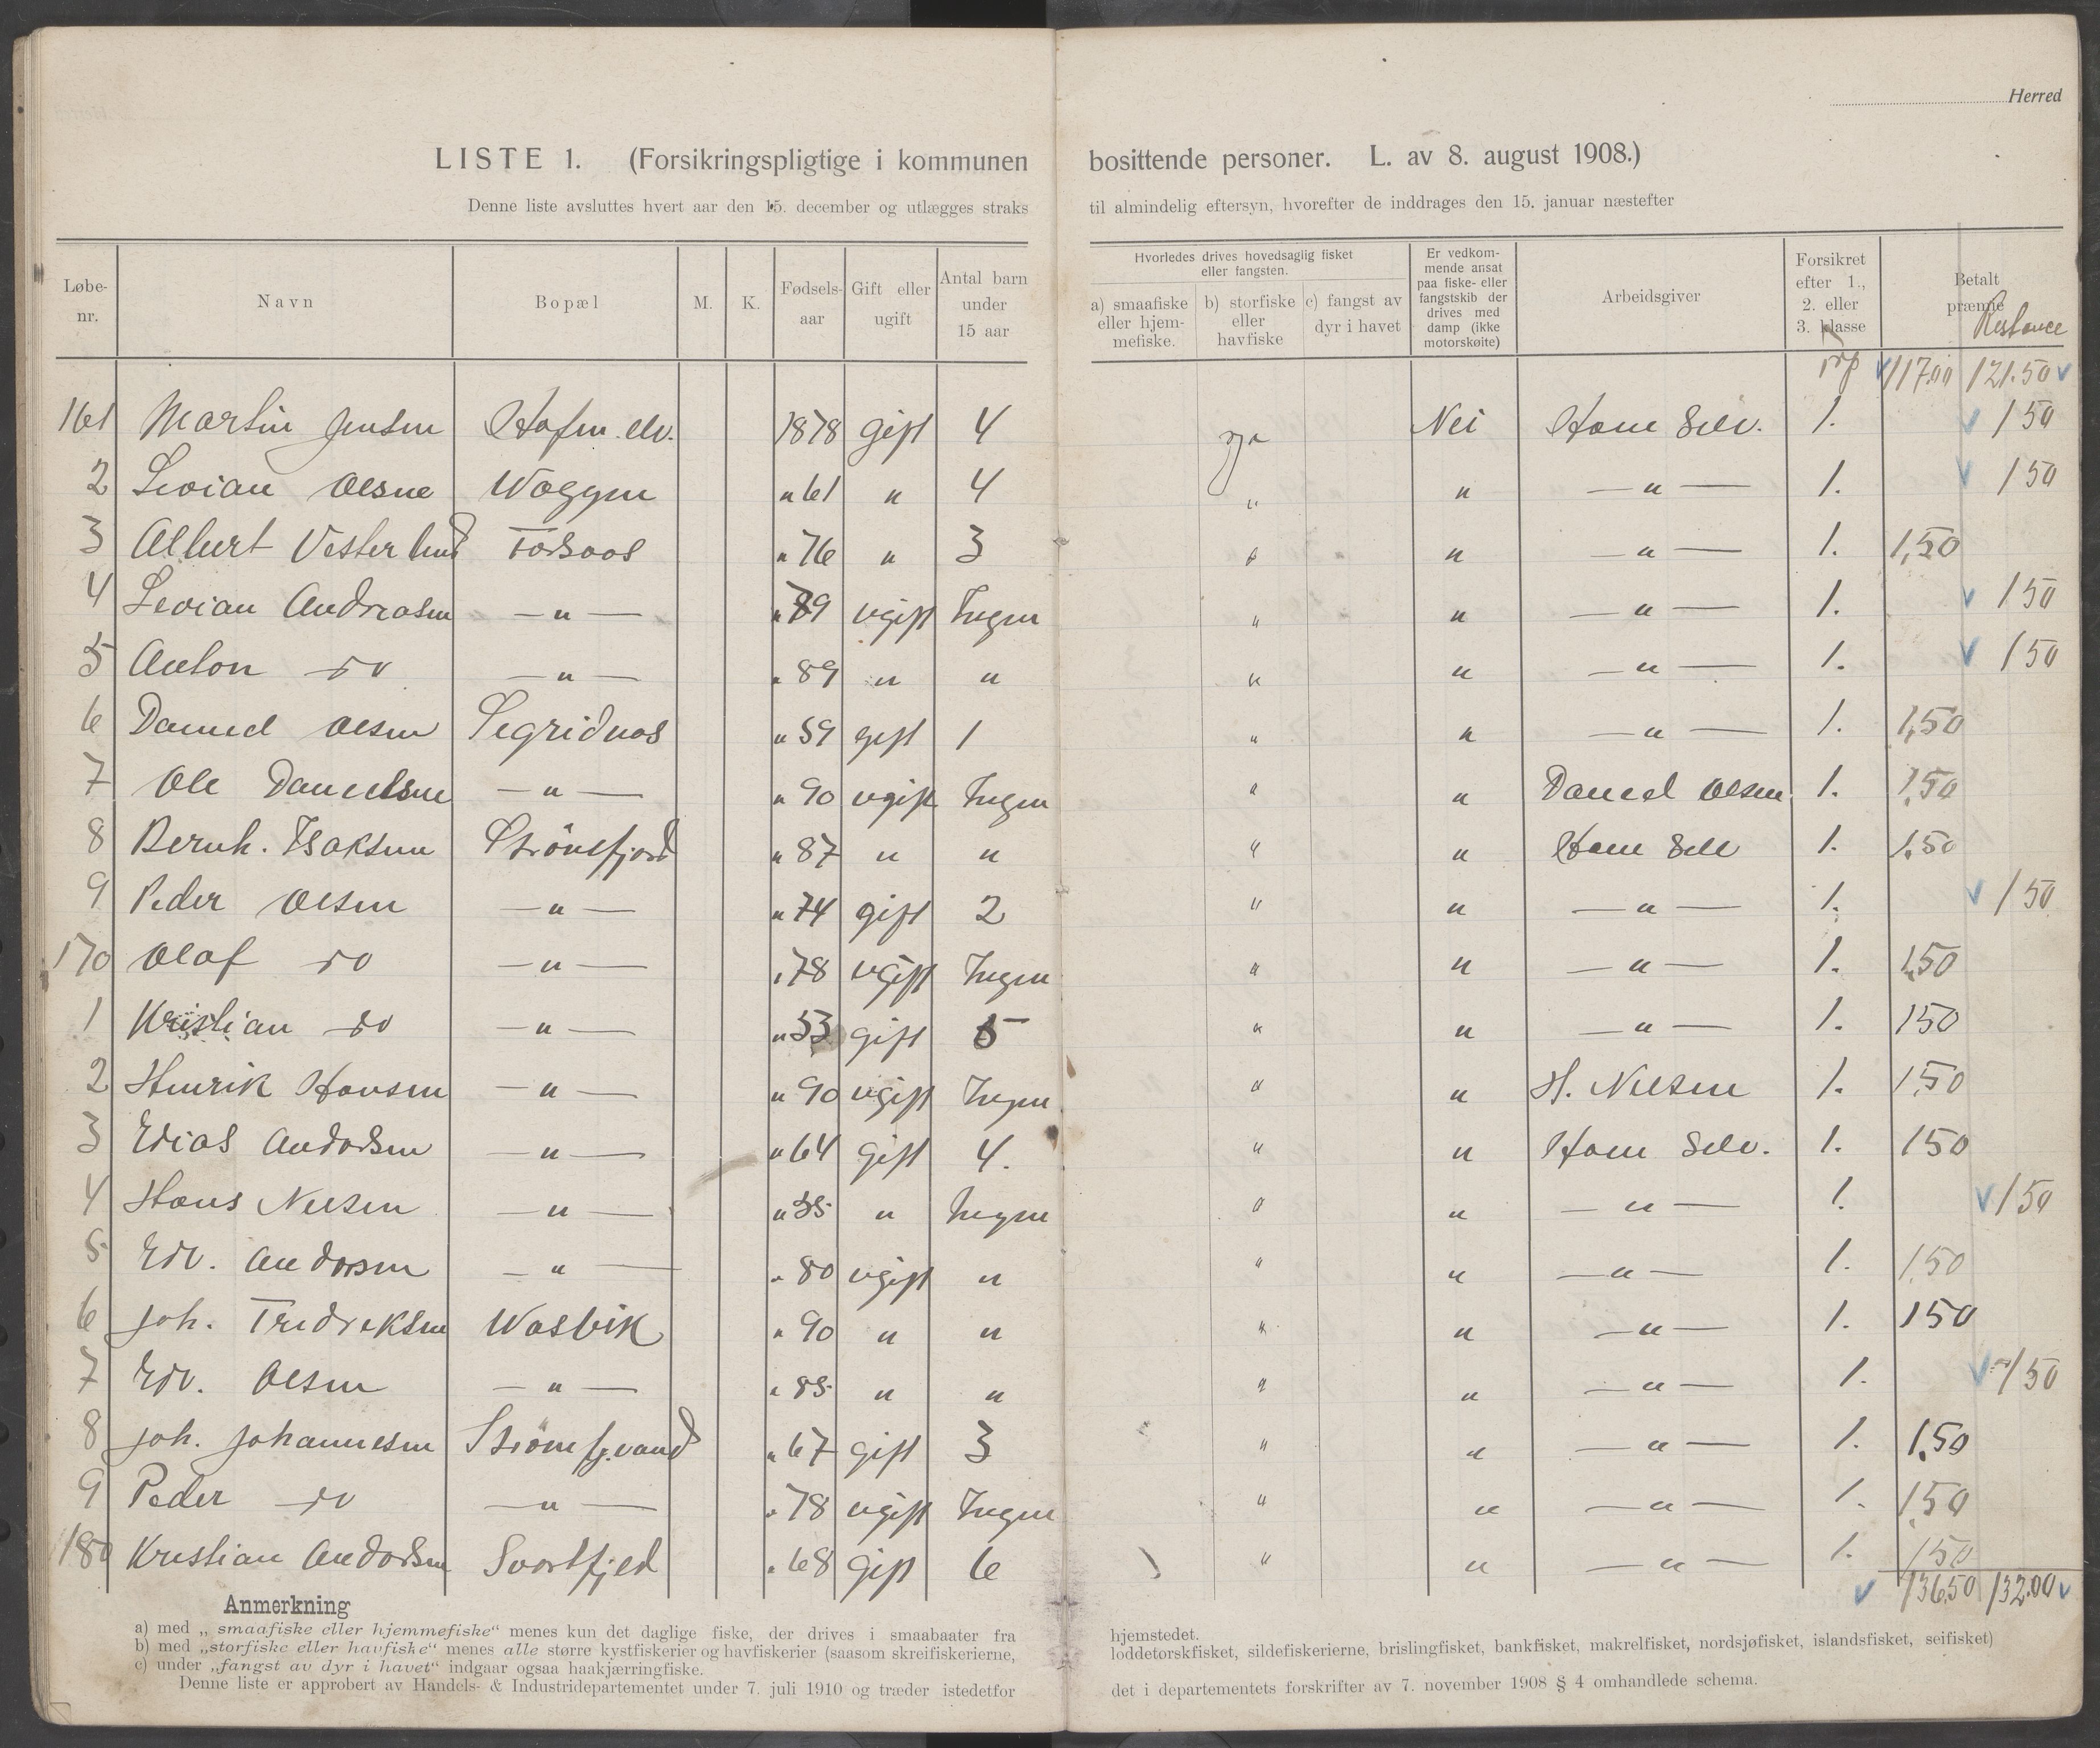 Herred
LISTE 1. (Forsikringspligtige i kommunen bosittende personer. L. av 8. august 1908.)
Denne liste avsluttes hvert aar den 15. december og utlægges straks til almindelig eftersyn, hvorefter de inddrages den 15. januar næstefter
Løbe-nr. Navn Bopæl M. K. Fødsels-aar Gift eller ugift Antal barn under 15 aar Hvorledes drives hovedsaglig fisket eller fangsten. a) smaafiske eller hjem-mefiske. b) storfiske eller havfiske c) fangst av dyr i havet Er vedkom-mende ansat paa fiske- eller fangstskib der drives med damp (ikke motorskøite) Arbeidsgiver Forsikret efter 1., 2. eller 3. klasse Betalt præmie Restance
117.00 121.50
161 Martin Jensen 1878 gift 4 ja Nei Ham Selv. 1. 150
2 Levian Olsen Waggen " 61 " 4 " " — " — 1. 150
3 Albert Vesterlund " 76 " 3 " " — " — 1. 1,50
4 Levian Andreasen — " — " 89 ugift Ingen " " — " — 1. 150
5 Anton do — " — " 89 " " " " — " — 1. 150
6 Daniel Olsen Segridnæs " 59 gift 1 " " — " — 1. 1,50
7 Ole Danielsen — " — " 90 ugift Ingen " " Daniel Olsen 1. 1,50
8 Bernh. Isaksen Strömsfjord " 87 " " " " Ham Selv 1. 1.50
9 Peder Olsen — " — " 74 gift 2 " " — " — 1. 150
170 Olaf do — " — " 78 ugift Ingen " " — " — 1. 1,50
1 Kristian do — " — " 53 gift 5 " " — " — 1. 150
2 Henrik Hansen — " — " 90 ugift Ingen " " H. Nilsen 1. 1,50
3 Edias Andorsen — " — " 64 gift 4. " " Ham Selv. 1. 150
4 Hans Nilsen — " — " " Ingen " " — " — 1. 150
5 Edv. Andorsen — " — " 80 ugift " " " — " — 1. 1.50
6 Joh. Fredreksen Wasvik " 90 " " " " — " — 1. 150
7 Edv. Olsen — " — " 85 " " " " — " — 1. 150
8 Joh. Johannesen Strömsfj.vand " 67 gift 3 " " — " — 1. 1.50
9 Peder do — " — " 78 ugift Ingen " " — " — 1. 1,50
180 Kristian Andorsen Svartfjeld " 68 gift 6 " " — " — 1. 150
136.50 132.00
Anmerkning
a) med „smaafiske eller hjemmefiske“ menes kun det daglige fiske, der drives i smaabaater fra hjemstedet.
b) med „storfiske eller havfiske“ menes alle større kystfiskerier og havfiskerier (saasom skreifiskerierne, loddetorskfisket, sildefiskerierne, brislingfisket, bankfisket, makrelfisket, nordsjøfisket, islandsfisket, seifisket)
c) under „fangst av dyr i havet“ indgaar ogsaa haakjærringfiske.
Denne liste er approbert av Handels- & Industridepartementet under 7. juli 1910 og træder istedetfor det i departementets forskrifter av 7. november 1908 § 4 omhandlede schema.